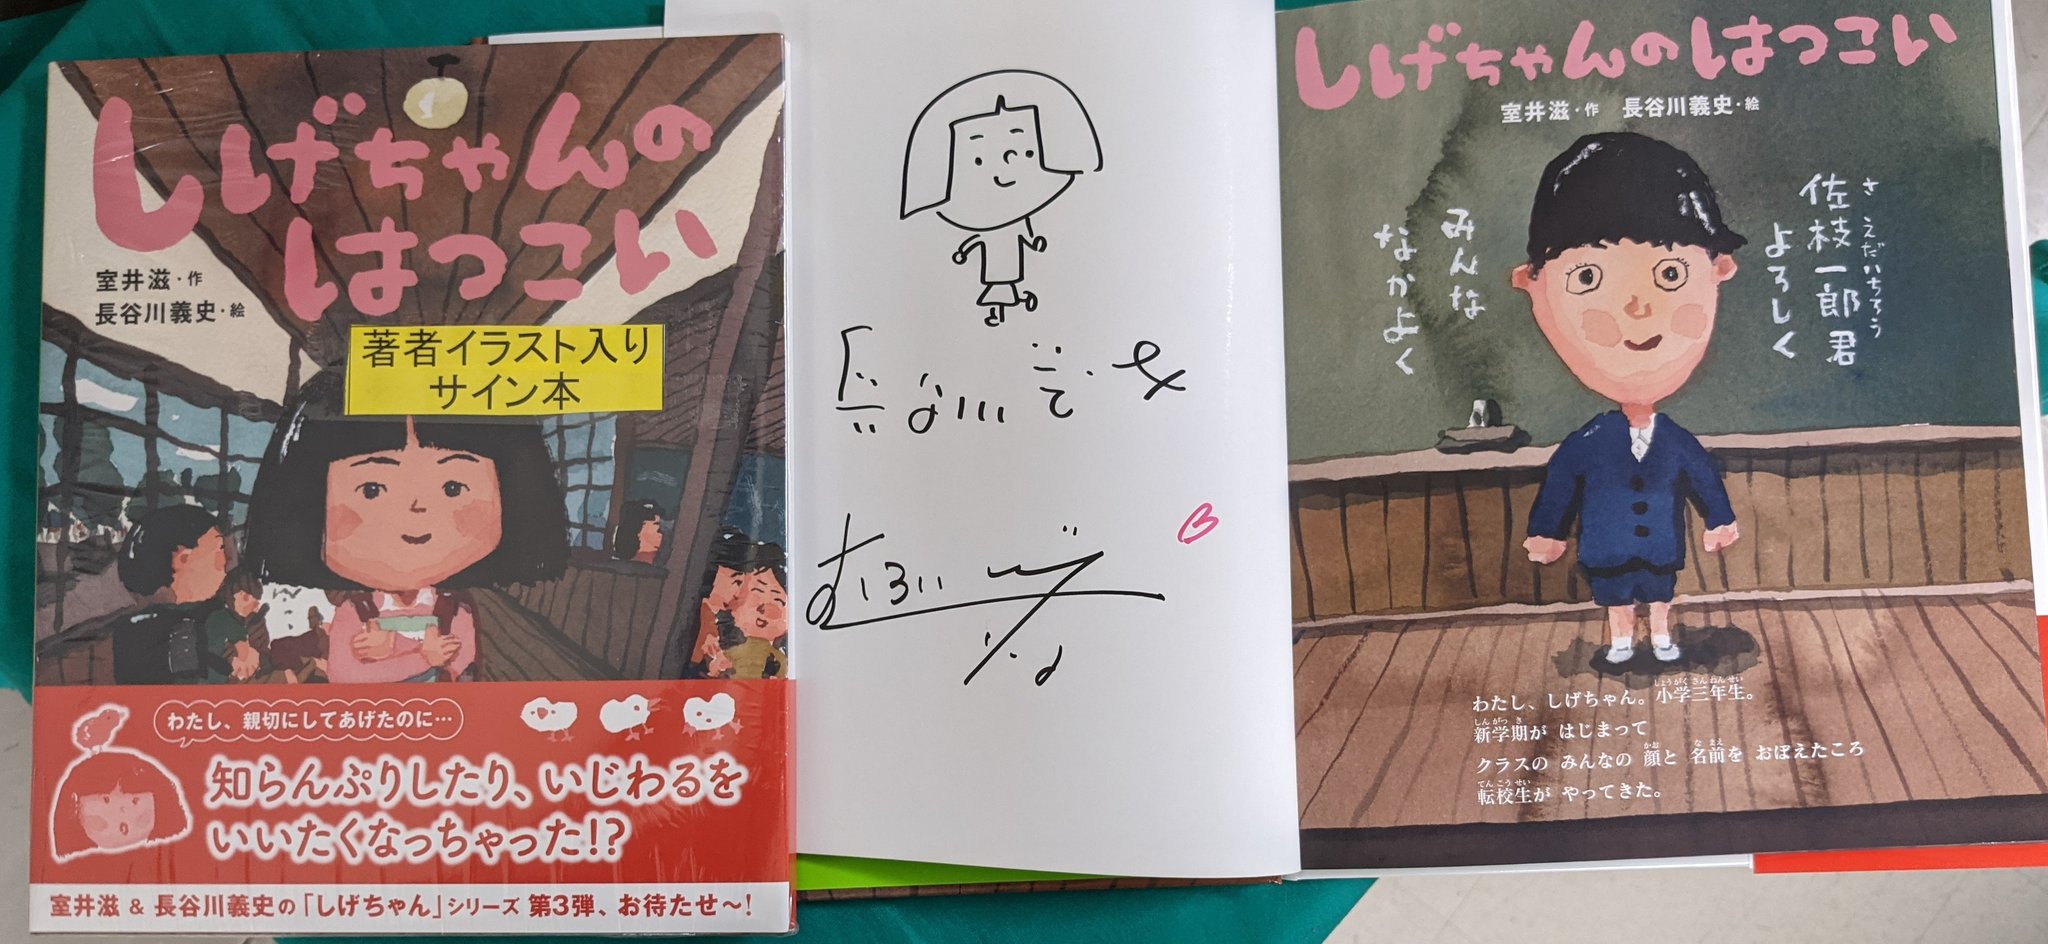 しげちゃんの
はつこい
室井滋・作
長谷川義史・絵
著者イラスト入り
サイン本
わたし、親切にしてあげたのに…
知らんぷりしたり、いじわるを
いいたくなっちゃった!?
室井滋 & 長谷川義史の「しげちゃん」シリーズ 第3弾、お待たせ〜!
しげちゃんのはつこい
室井滋・作 長谷川義史・絵
さえだいちろう
佐枝一郎君
よろしく
みんな
なかよく
わたし、しげちゃん。小学三年生。
しょうがくさんねんせい
新学期が はじまって
しんがっき
クラスの みんなの 顔と 名前を おぼえたころ
かお なまえ
転校生が やってきた。
てんこうせい